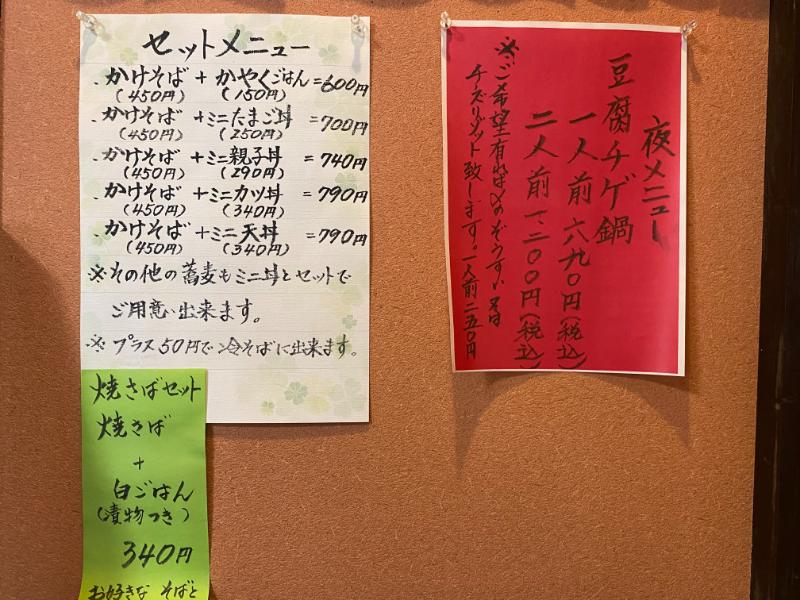 セットメニュー
・かけそば + かやくごはん = 600円
(450円) (150円)
・かけそば + ミニたまご丼 = 700円
(450円) (250円)
・かけそば + ミニ親子丼 = 740円
(450円) (290円)
・かけそば + ミニカツ丼 = 790円
(450円) (340円)
・かけそば + ミニ天丼 = 790円
(450円) (340円)
※その他の蕎麦もミニ丼とセットで
ご用意出来ます。
※プラス50円で冷そばに出来ます。
焼さばセット
焼さば
+
白ごはん
(漬物つき)
340円
お好きな そばと
夜メニュー
豆腐チゲ鍋
一人前 六九〇円(税込)
二人前 一二〇〇円(税込)
※ご希望有れば〆のぞうすい又は
チーズリゾット致します。一人前二五〇円